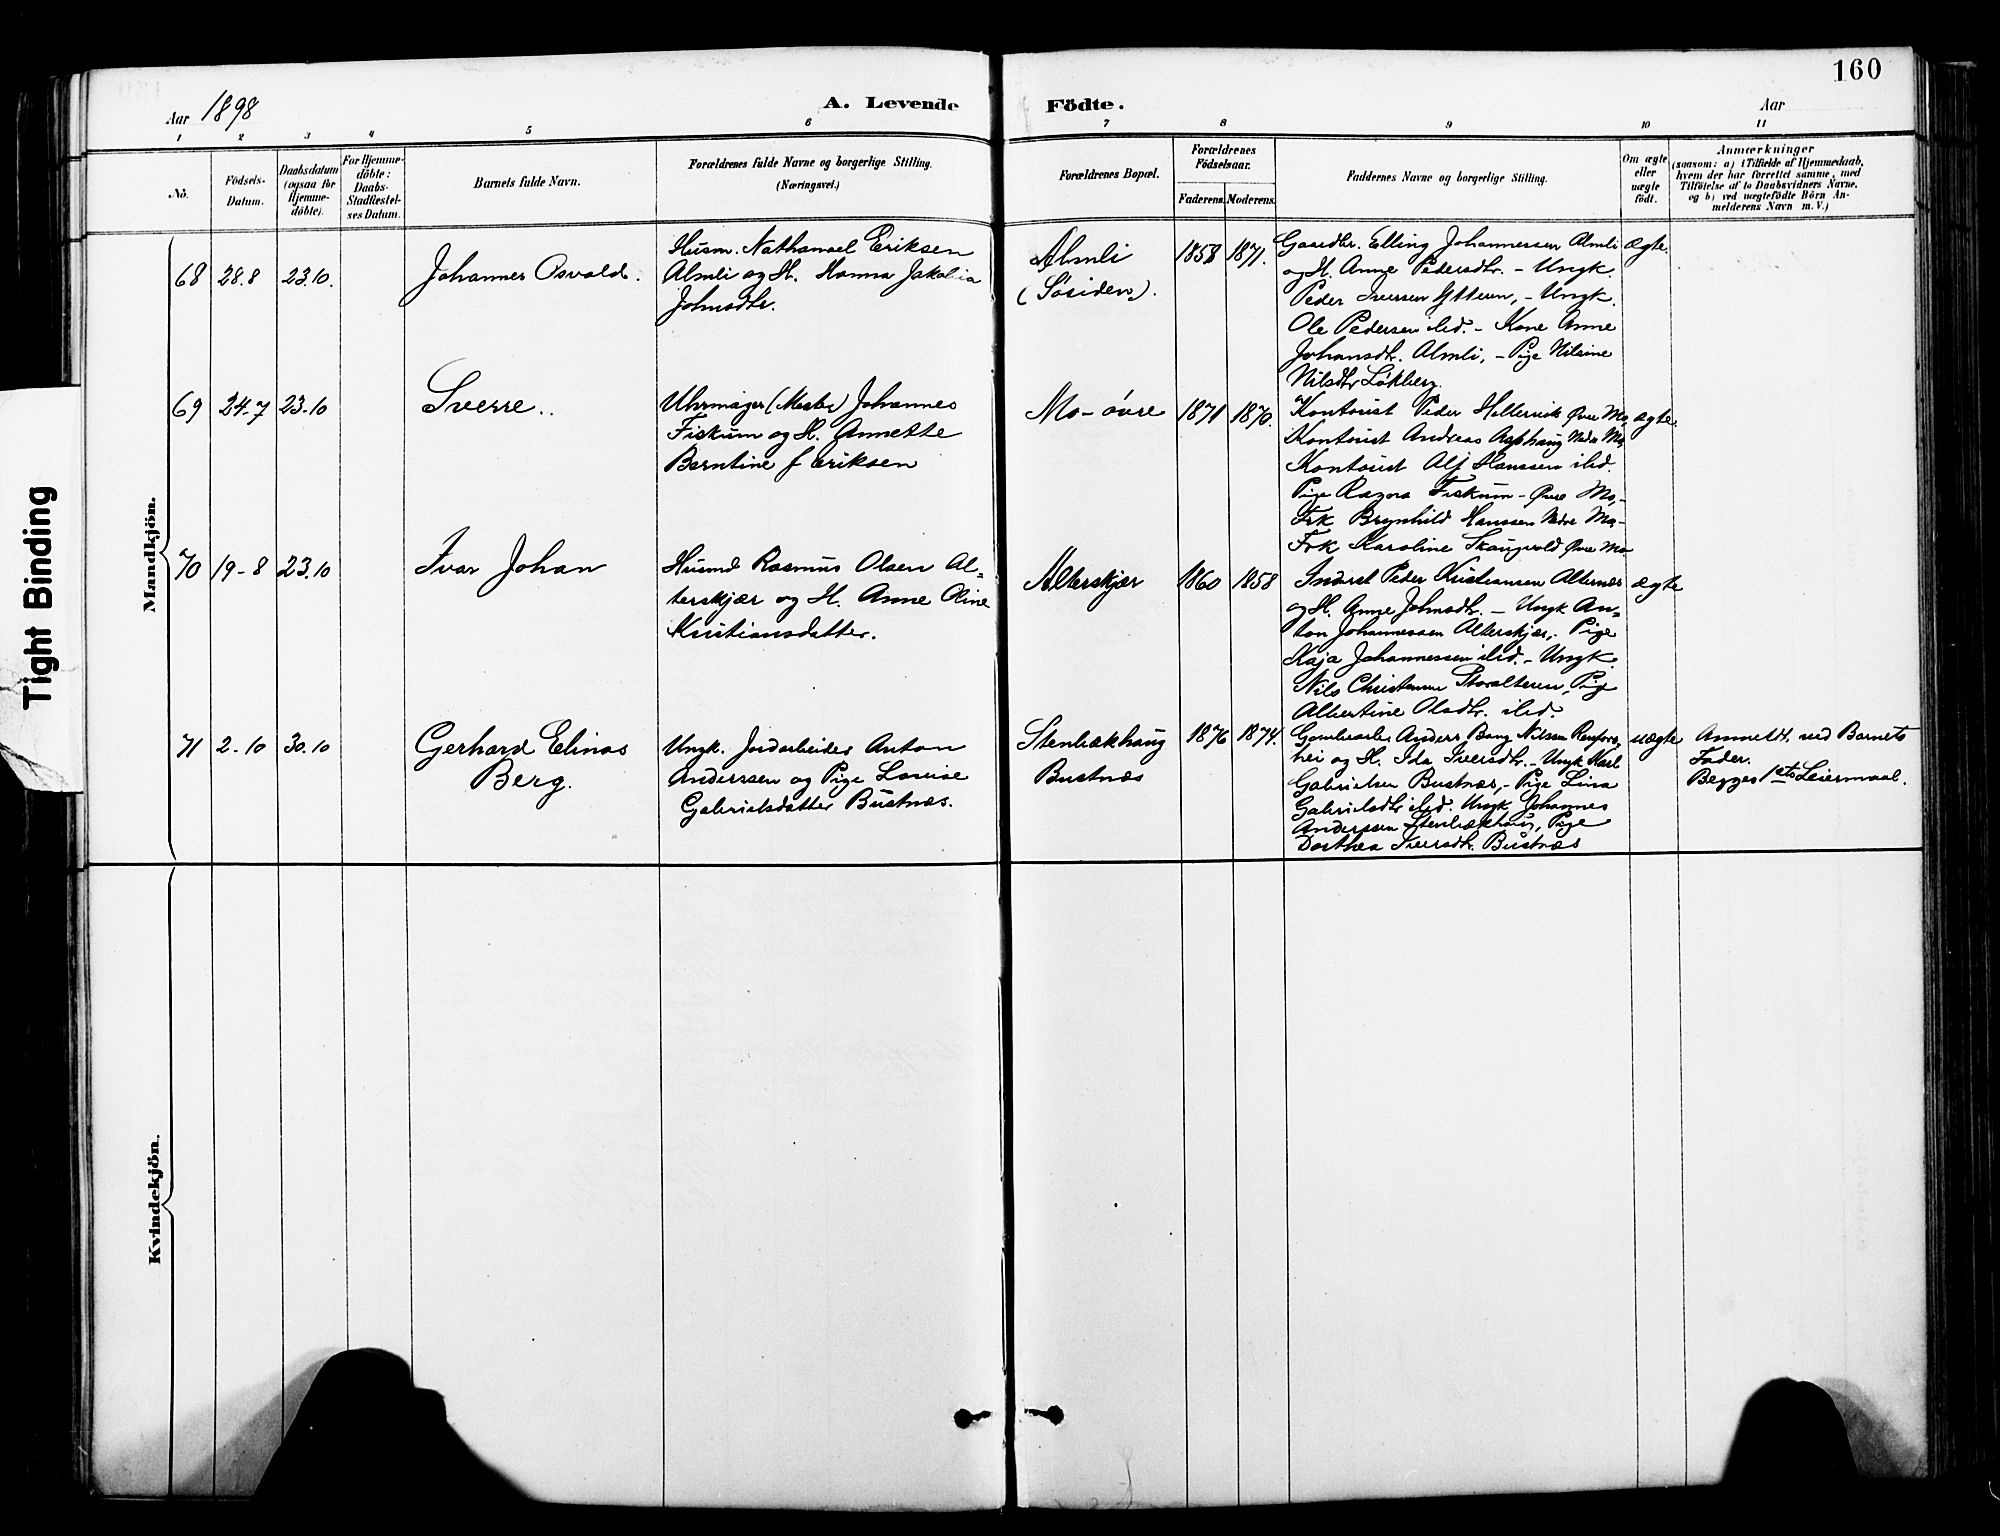 160
Aar 1898
A. Levende
Födte.
Aar
1 2 3 4 5 6 7 8 9 10 11
No.
Födsels-
Datum.
Daabsdatum
(ogsaa for
Hjemme-
döbte).
For Hjemme-
döbte:
Daabs-
Stadfæstel-
ses Datum.
Barnets fulde Navn.
Forældrenes fulde Navne og borgerlige Stilling.
(Næringsvei.)
Forældrenes Bopæl.
Forældrenes
Födselsaar.
Faderens. Moderens.
Faddernes Navne og borgerlige Stilling.
Om ægte
eller
uægte
födt.
Anmærkninger
(saasom: a) i Tilfælde af Hjemmedaab,
hvem der har forrettet samme, med
Tilföielse af to Daabsvidners Navne,
og b) ved uægtefödte Börn An-
melderens Navn m. V.)
Mandkjön.
68
28.8
23.10.
Johannes Osvald.
Husm. Nathanael Eriksen
Almli og H. Hanna Jakobia
Johnsdtr.
Almli
(Søsiden).
1858
1871.
Gaardbr. Elling Johannessen Almli
og H. Anne Pedersdtr. - Ungk.
Peder Iversen Ytteren, - Ungk.
Ole Pedersen ibid. - Kone Anne
Johansdtr. Almli, - Pige Nilsine
Nilsdtr Løkberg.
ægte.
69
24-7
23.10
Sverre..
Uhrmager (Mester) Johannes
Fiskum og H. Annette
Berntine f Eriksen
Mo-øvre
1871
1870.
Kontorist Peder Hellervik Øvre Mo,
Kontorist Andreas Asphaug Nedre Mo,
Kontorist Alf Hanssen ibid.
Pige Ragna Fiskum - Øvre Mo,-
Frk Brynhild Hanssen Nedre Mo-
Frk Karoline Skaugvold Øvre Mo
ægte.
70
19-8
23.10
Ivar Johan
Husmd Rasmus Olsen Al-
terskjær og H. Anne Oline
Kristiansdatter.
Alterskjær
1860
1858
Inderst Peder Kristiansen Alternæs
og H. Anne Johnsdtr. - Ungk An-
ton Johannessen Alterskjær,- Pige
Kaja Johannessen ibid. - Ungk.
Nils Storalteren, Pige
Albertine Olsdtr. ibid.
ægte
71
2-10
30.10
Gerhard Elinas
Berg.
Ungk. Jordarbeider Anton
Anderssen og Pige Lovise
Gabrielsdatter Bustnæs.
Stenbækhaug
Bustnæs
1876
1874.
Anders Bang Nilsen
og H. Ida Iversdtr. - Ungk Karl
Gabrielsen Bustnæs,- Pige Lina
Gabrielsdtr ibid. Ungk Johannes
Anderssen Stenbækhaug, Pige
Dorthea Iversdtr. Bustnæs
uægte
Anmeldt. ved Barnets
Fader.
Begges 1ste Leiermaal.
Kvindekjön.
Tight Binding